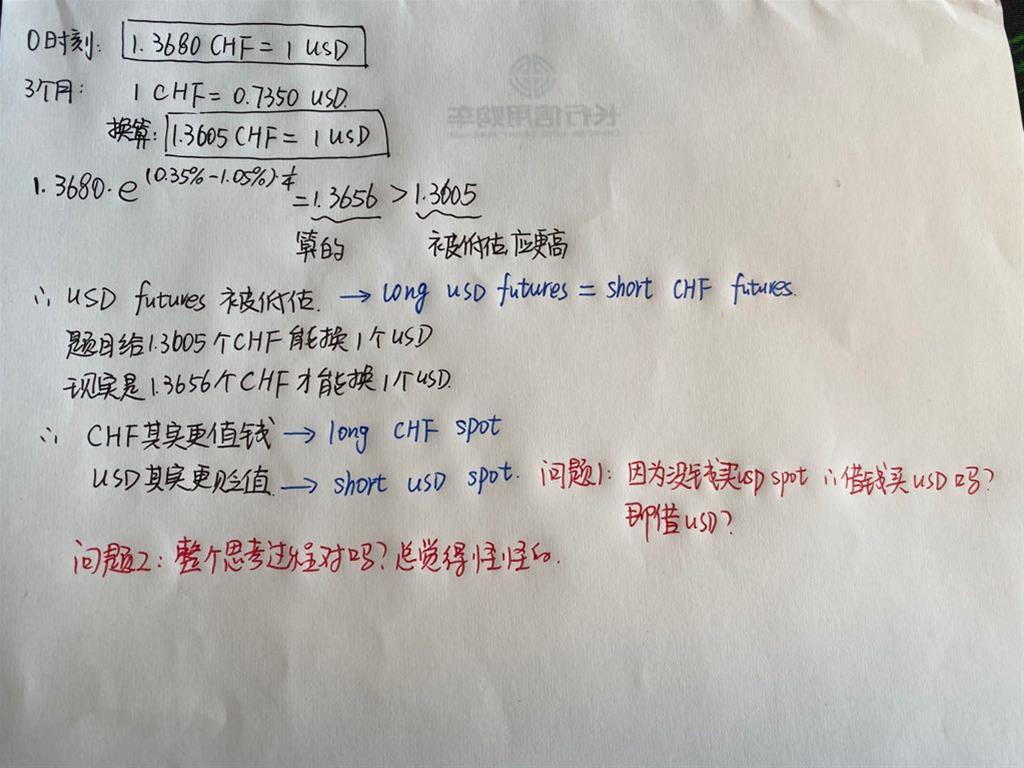 0时刻: 1.3680 CHF = 1 USD
3个月: 1 CHF = 0.7350 USD.
换算: 1.3605 CHF = 1 USD
1.3680·e^(0.35%-1.05%)·1/4 = 1.3656 > 1.3605
算的 被低估,应更高
∴ USD futures 被低估. → long USD futures = short CHF futures.
题目给1.3605个CHF能换1个USD
现实是1.3656个CHF才能换1个USD.
∴ CHF其实更值钱 → long CHF spot
USD其实更贬值. → short USD spot. 问题1: 因为没钱买USD spot ∴借钱买USD吗?
即借USD?
问题2: 整个思考过程对吗? 总觉得怪怪的.
长行信用购车